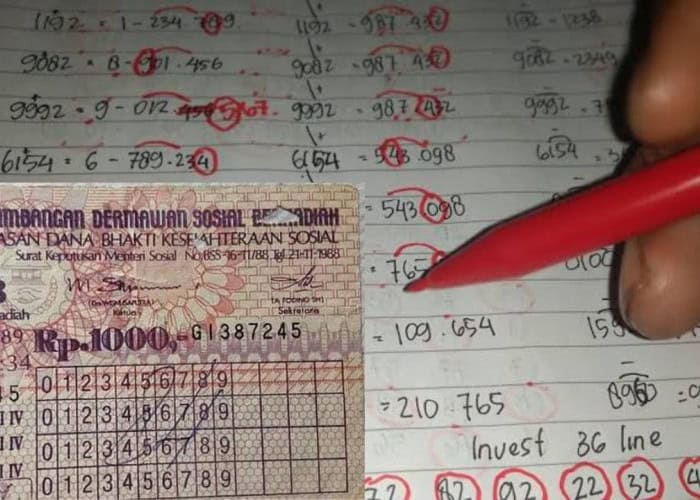 1192 = 1 - 234.789 1192 - 987 432 1192 - 1238
9082 = 8 - 901.456 9082 - 987 432 9082 - 2349
9992 = 9 - 012 456 567. 9992 = 987 432 9992 - 7
6154 = 6 - 789.234 6154 = 543.098 6154
= 543 098
= 765
= 109.654 15
= 210.765
Invest 36 line
82 92 22 32
MBANGAN DERMAWAN SOSIAL BERHADIAH
ASAN DANA BHAKTI KESEJAHTERAAN SOSIAL
Surat Keputusan Menteri Sosial No. BSS-16-11/88 Tgl 21-11-1988
adiah Ketua Sekretaris
89 Rp.1000,- GI387245
34
5 0 1 2 3 4 5 6 7 8 9
IV 0 1 2 3 4 5 6 7 8 9
IV 0 1 2 3 4 5 6 7 8 9
IV 0 1 2 3 4 5 6 7 8 9